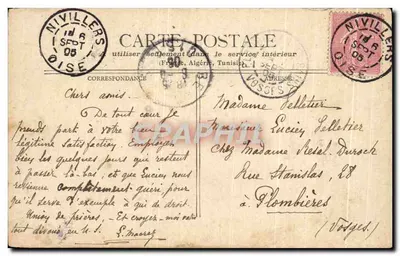 NIVILLERS
1E 6
SEPT
05
OISE
CARTE POSTALE
utiliser seulement dans le service intérieur
(France, Algérie, Tunisie)
CORRESPONDANCE
ADRESSE
NIVILLERS
1E 6
SEPT
05
OISE
VOSGES
Chers amis.
De tout cœur je
prends part à votre
légitime satisfaction. Employez
bien les quelques jours que restent
à passer là-bas, et que Lucien nous
revienne complètement guéri, pour
qu'il serve d'exemple à qui de droit.
Union de prières, - Et croyez-moi
tout dévoué en N. S.
Madame Pelletier
Monsieur Lucien Pelletier
Chez Madame Résal-Duroch
Rue Stanislas, 28
à Plombières
(Vosges)
CPARAMA